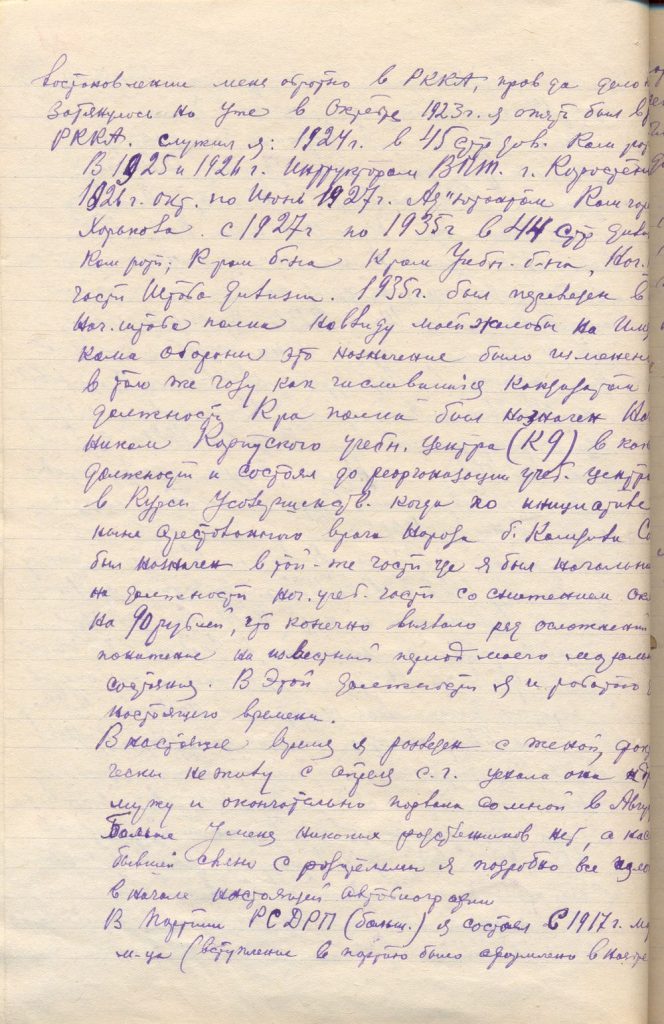 востановлении меня обратно в РККА, правда дело
затянулось но уже в Октябре 1923г. я опять был в
РККА. служил я: 1924г. в 45 стр див. Ком рот
В 1925 и 1926г. Инструктором ВПт. г. Коростень
1926г. окт. по Июнь 1927г. Ад"ютантом Ком гор
Харькова. с 1927г по 1935г в 44 стр диви
Ком роты; К-ром б-на К-ром Учебн. б-на, Нач.
части Штаба дивизии. 1935г. был переведен в
нач. штаба полка но ввиду моей жалобы на Имя
кома обороны это назначение было изменен
в том же году как числившийся кандидатом
должности К-ра полка был назначен На
ником учебн. центра (К9) в как
должности и состоял до реорганизации учеб. центр
в Курсы Усовершенств. когда по инициативе
ныне арестованного врага народа б.
был назначен в той-же части где я был начальни
на должность нач. учеб. части со снижением ок
на 90 рублей, что конечно вызвало ряд осложнений
понижение на известный период моего
состояния. В этой должности я и работаю
настоящего времени.
В настоящее время я разведен с женой, фак
чески не живу с апреля с.г. уехала она
мужу и окончательно порвала со мной в Авгу
Больше у меня никаких родственников нет, а нас
бывшей связи с родителями я подробно все изло
в начале настоящей автобиографии
В Партии РСДРП (больш.) я состоял с 1917г. м
м-ца (вступление в партию было оформлено в Ноябре